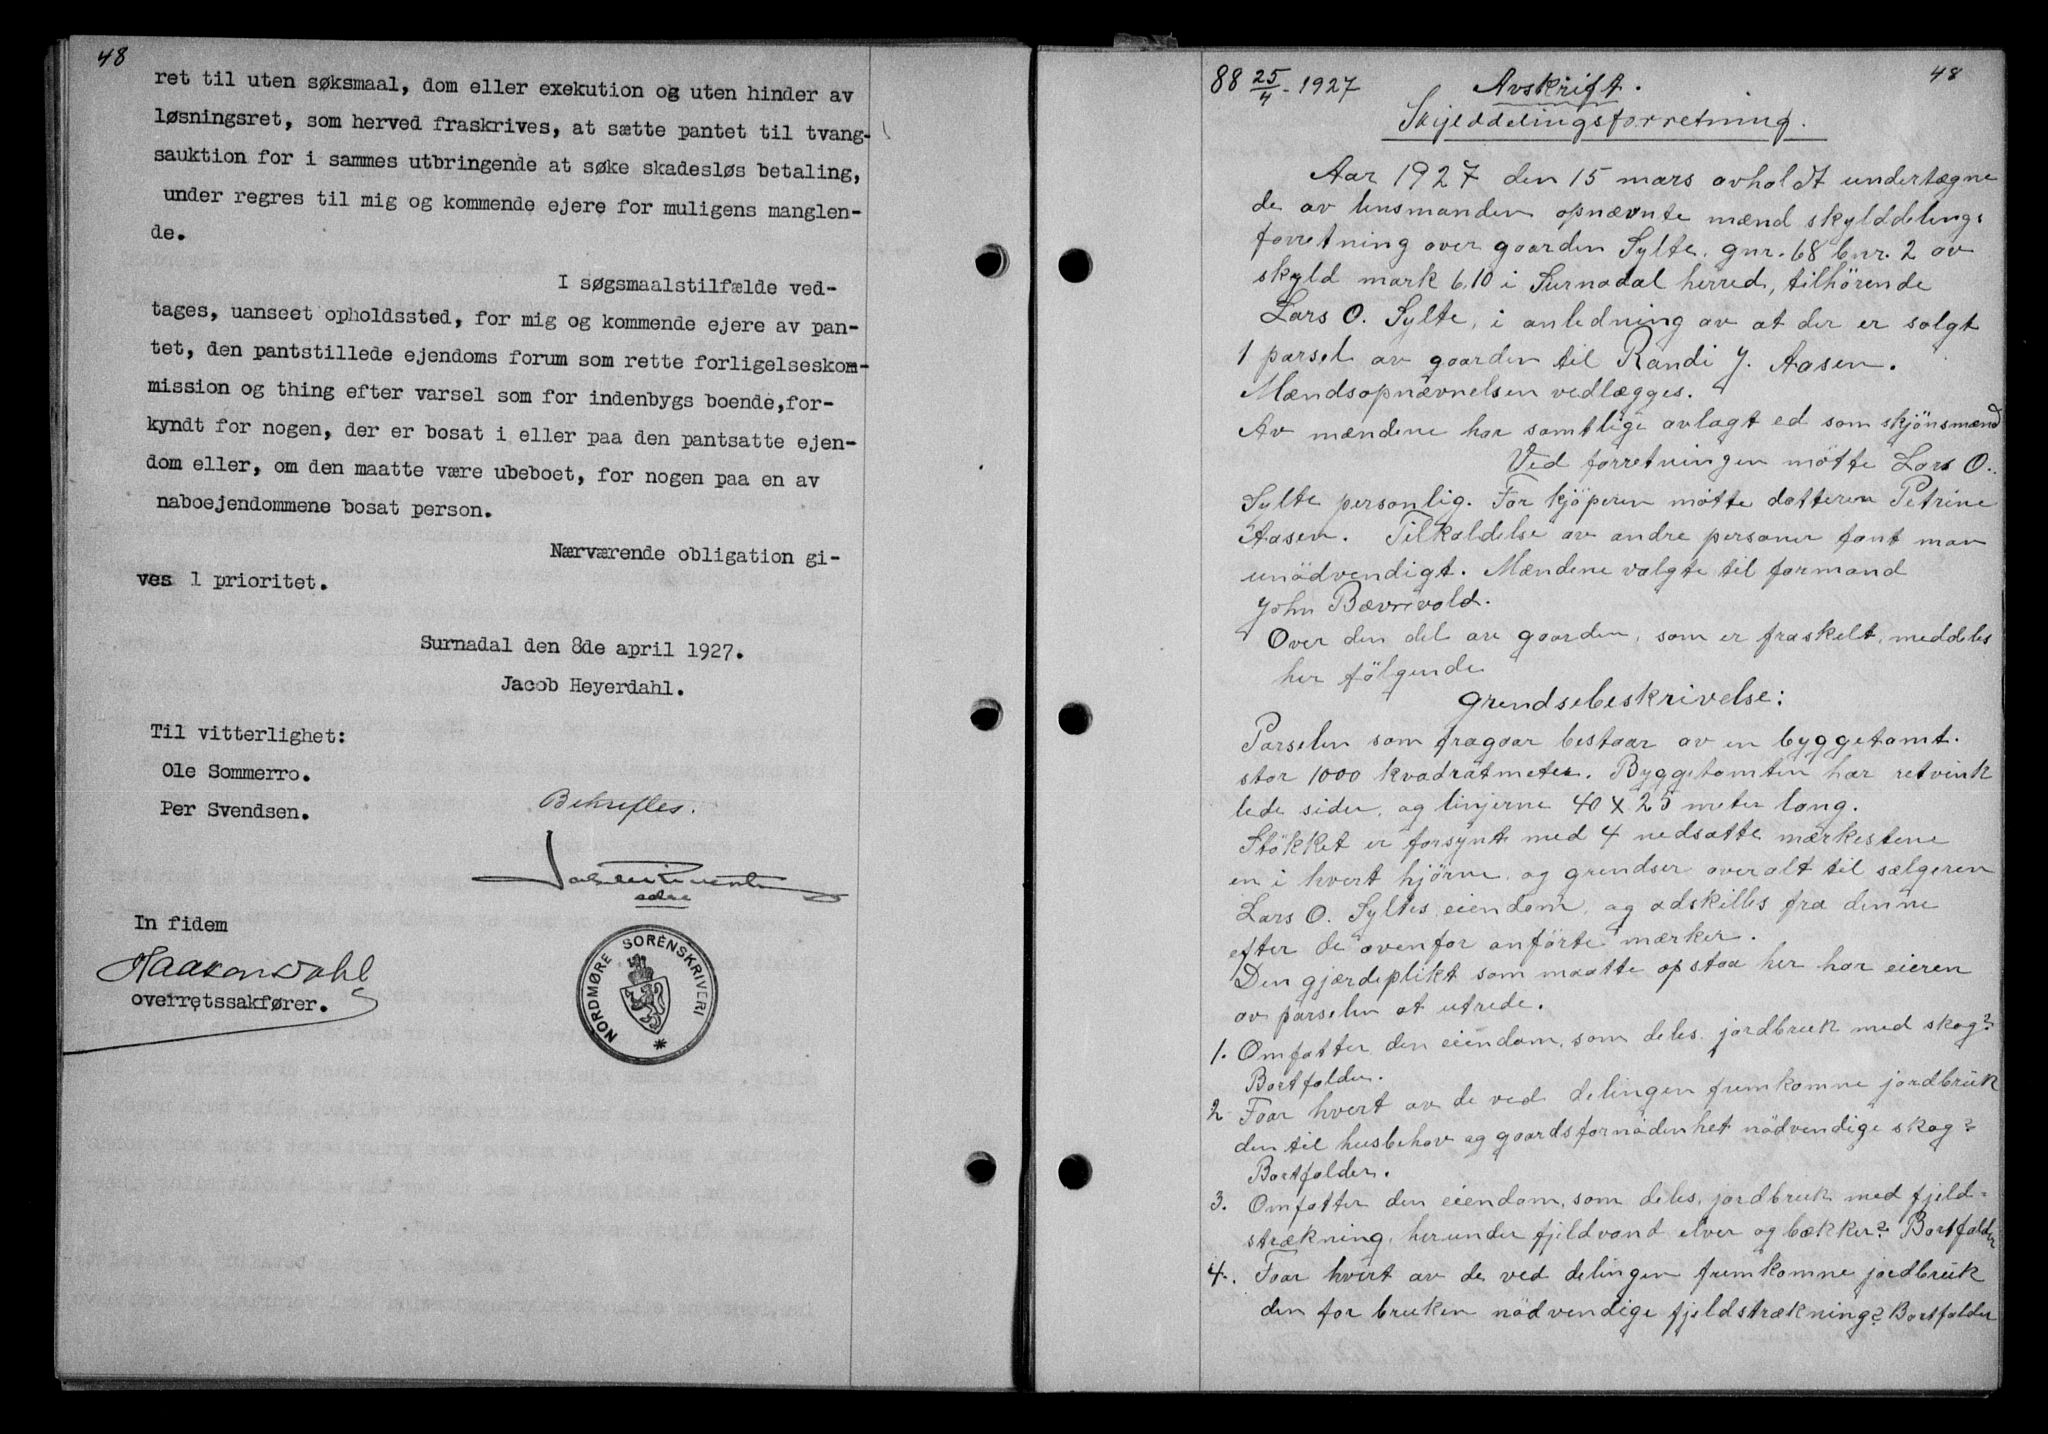 48
ret til uten søksmaal, dom eller exekution og uten hinder av
løsningsret, som herved fraskrives, at sætte pantet til tvang-
sauktion for i sammes utbringende at søke skadesløs betaling,
under regres til mig og kommende ejere for muligens manglen-
de.
I søgsmaalstilfælde ved-
tages, uanseet opholdssted, for mig og kommende ejere av pan-
tet, den pantstillede ejendoms forum som rette forligelseskom-
mission og thing efter varsel som for indenbygs boende,for-
kyndt for nogen, der er bosat i eller paa den pantsatte ejen-
dom eller, om den maatte være ubeboet, for nogen paa en av
naboejendommene bosat person.
Nærværende obligation gi-
ves 1 prioritet.
Surnadal den 8de april 1927.
Jacob Heyerdahl.
Til vitterlighet:
Ole Sommerro.
Per Svendsen.
Bekreftes.
In fidem
Haakon Dahl
overretssakfører.
NORDMØRE SORENSKRIVERI
48
88 25/4-1927
Avskrift.
Skjylddelingsforretning.
Aar 1927 den 15 mars avholdt undertegne
de av lensmanden opnævnte mænd skylddelings
forretning over gaarden Sylte, gnr. 68 bnr. 2 av
skyld mark 6,10 i Surnadal herred, tilhørende
Lars O. Sylte, i anledning av at der er solgt
1 parsel av gaarden til Randi J. Aasen.
Mændsopnævnelsen vedlægges.
Av mændene har samtlige avlagt ed som skjönsmænd
Ved forretningen møtte Lars O.
Sylte personlig. For kjöperen møtte datteren Petrine
Aasen. Tilkaldelse av andre personer fant man
unödvendigt. Mændene valgte til formand
John Bævrivold.
Over den del av gaarden, som er fraskelt, meddeles
her fölgende
Grendsebeskrivelse:
Parselen som fragaar bestaar av en byggetomt.
stor 1000 kvadratmeter. Byggetomten har retvink
lede sider, og linjerne 40 x 25 meter lang.
Stökket er forsynt med 4 nedsatte mærkestene
en i hvert hjörne, og grendser overalt til sælgeren
Lars O. Syltes eiendom, og adskilles fra denne
efter de ovenfor anförte mærker.
Den gjærdeplikt som maatte opstaa her har eieren
av parselen at utrede.
1. Omfatter den eiendom, som deles, jordbruk med skog?
Bortfalder.
2 Faar hvert av de ved delingen fremkomne jordbruk
den til husbehov og gaardsfornödenhet nödvendige skog?
Bortfalder.
3. Omfatter den eiendom, som deles, jordbruk med fjeld-
strækning, herunder fjeldvand elver og bækker? Bortfalder
4. Faar hvert av de ved delingen fremkomne jordbruk
den for bruken nödvendige fjeldstrækning? Bortfalder